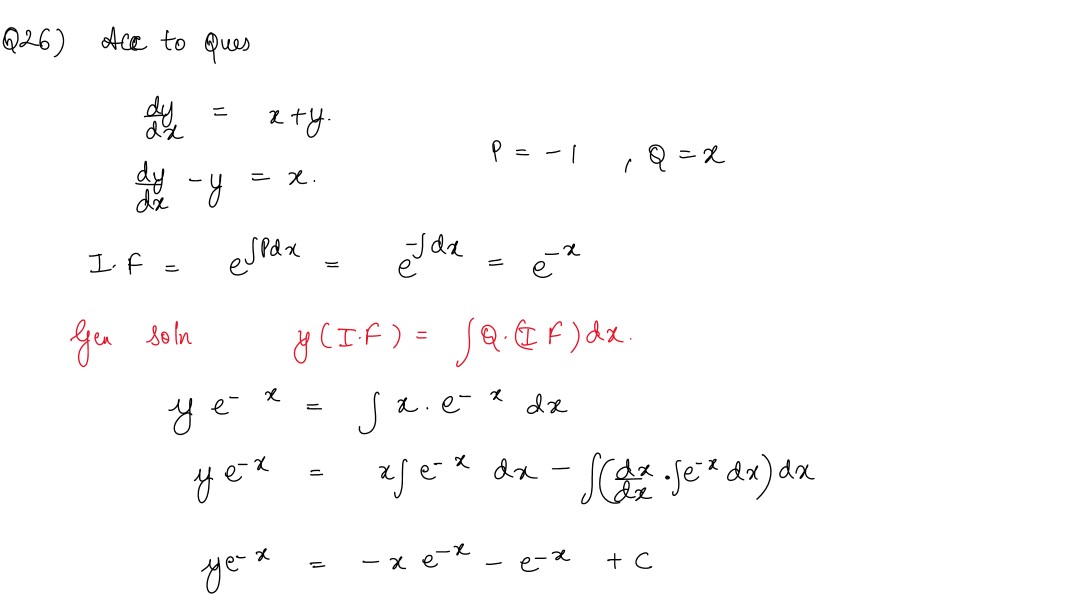 Q26) Acc to Ques
dy/dx = x+y.
dy/dx - y = x.
P = -1 , Q = x
I.F = e^∫Pdx = e^-∫dx = e^-x
Gen soln y(I.F) = ∫Q.(I F)dx.
y e^-x = ∫ x . e^-x dx
y e^-x = x∫ e^-x dx - ∫(dx/dx . ∫e^-x dx) dx
ye^-x = -x e^-x - e^-x + C